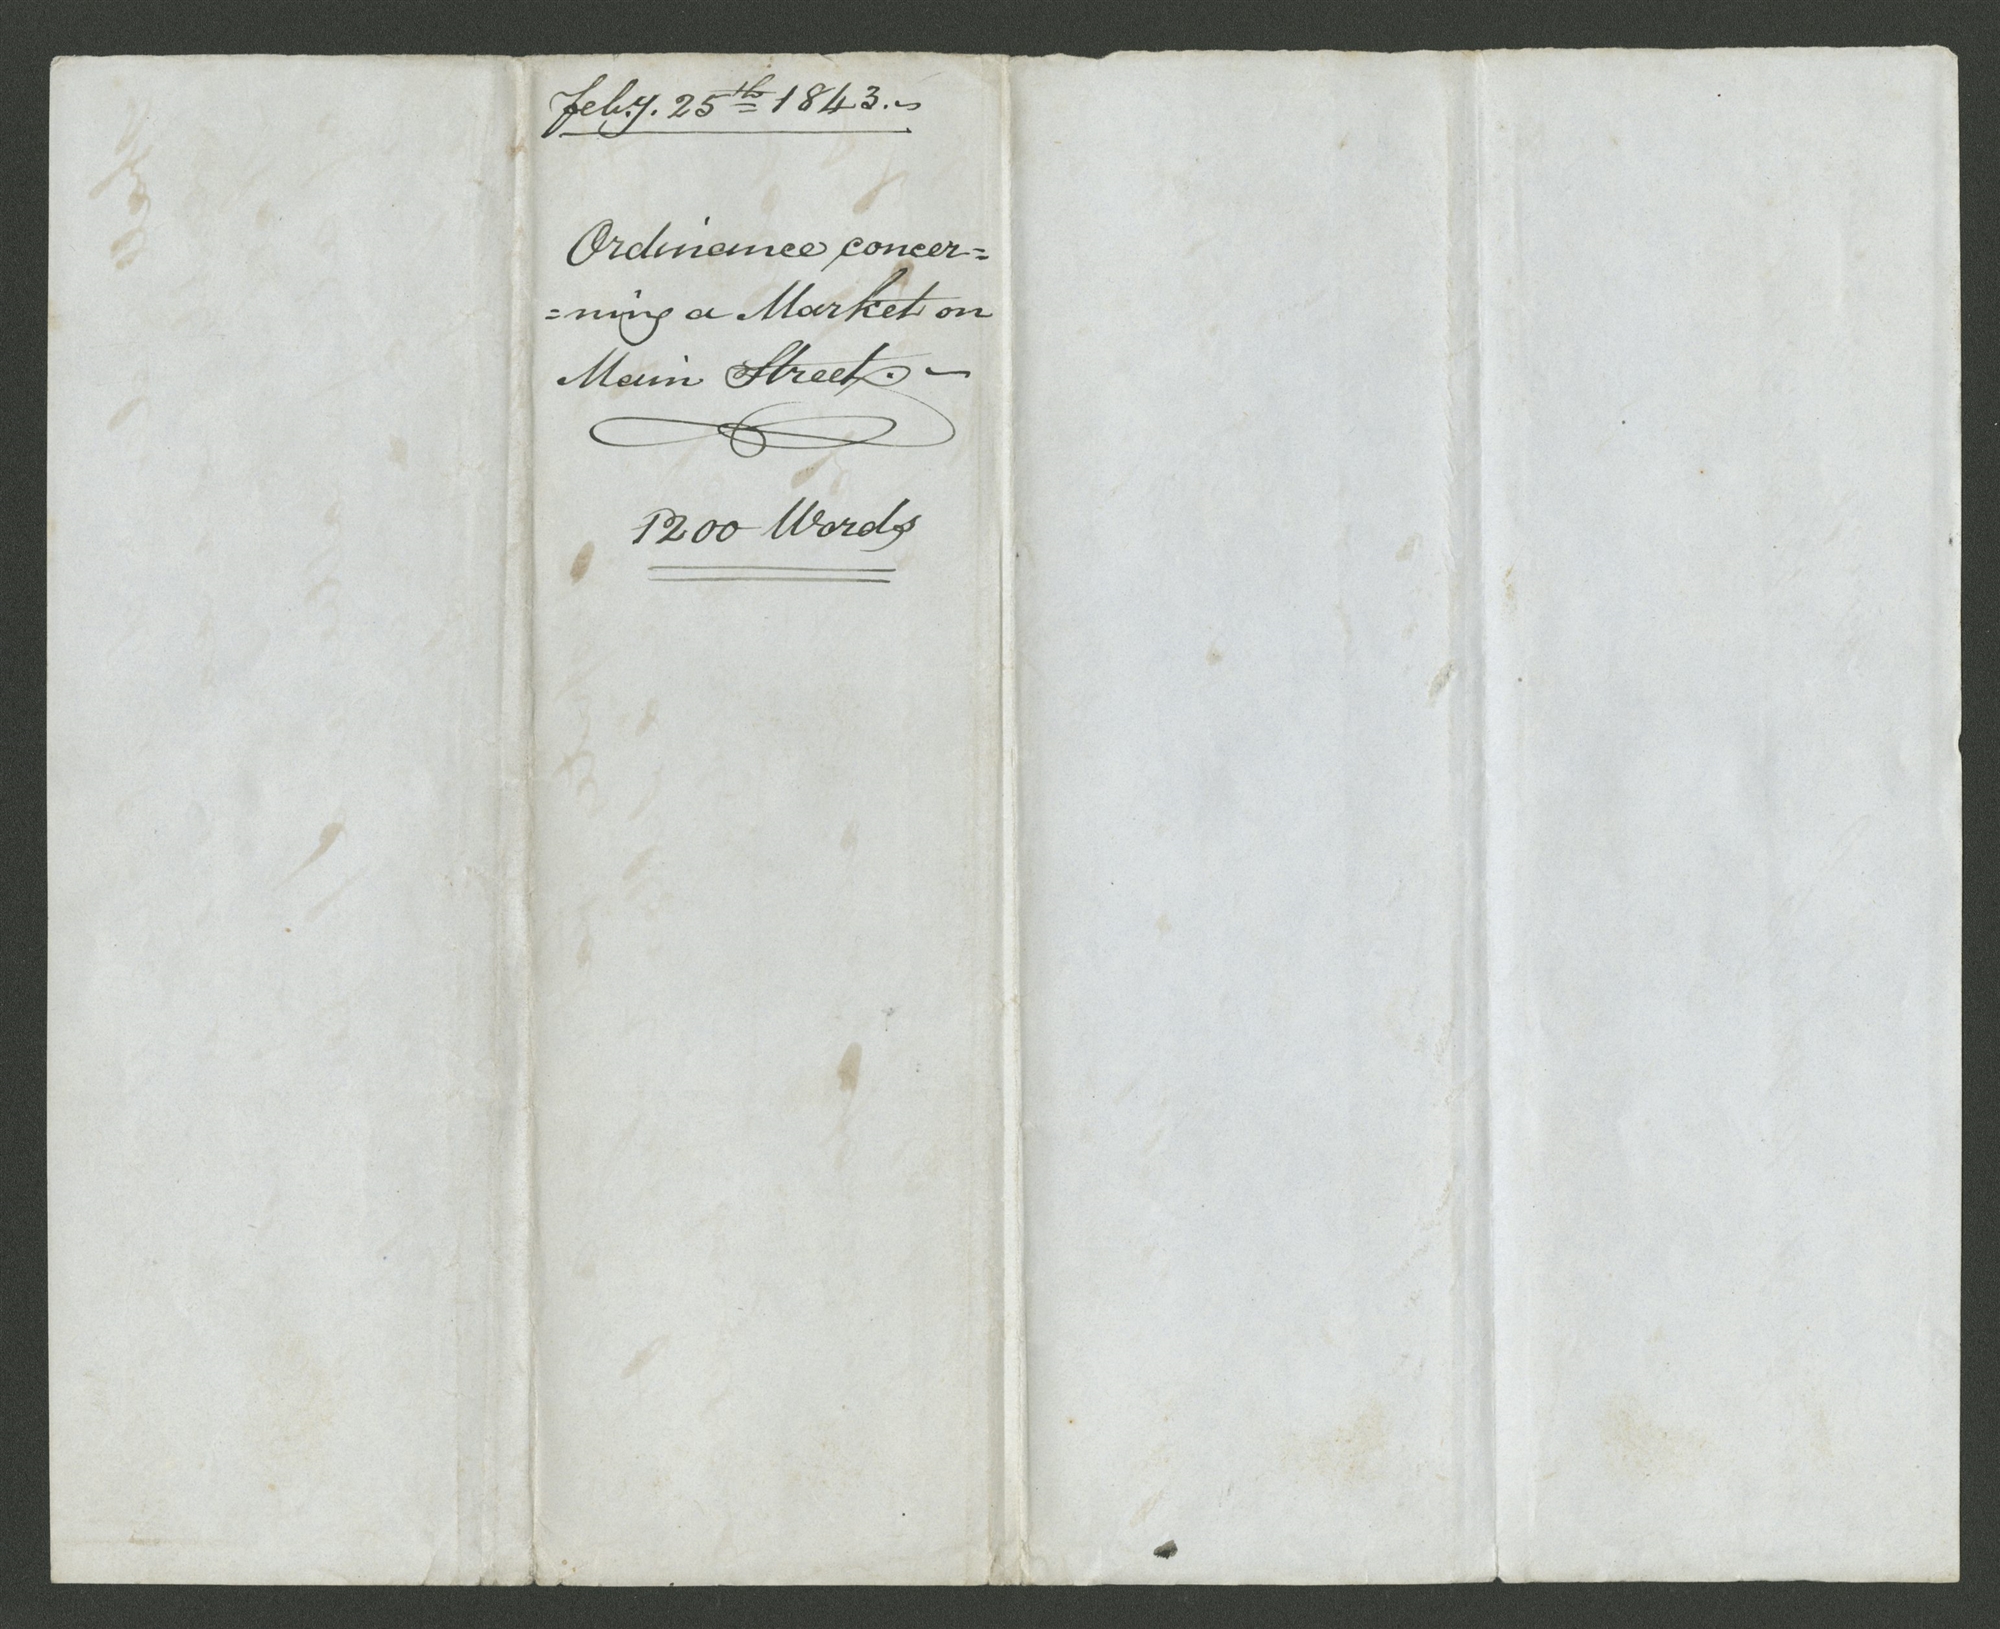 Feb.y. 25th 1843.
Ordinance concer=
=ning a Market on
Main Street. —
1200 Words